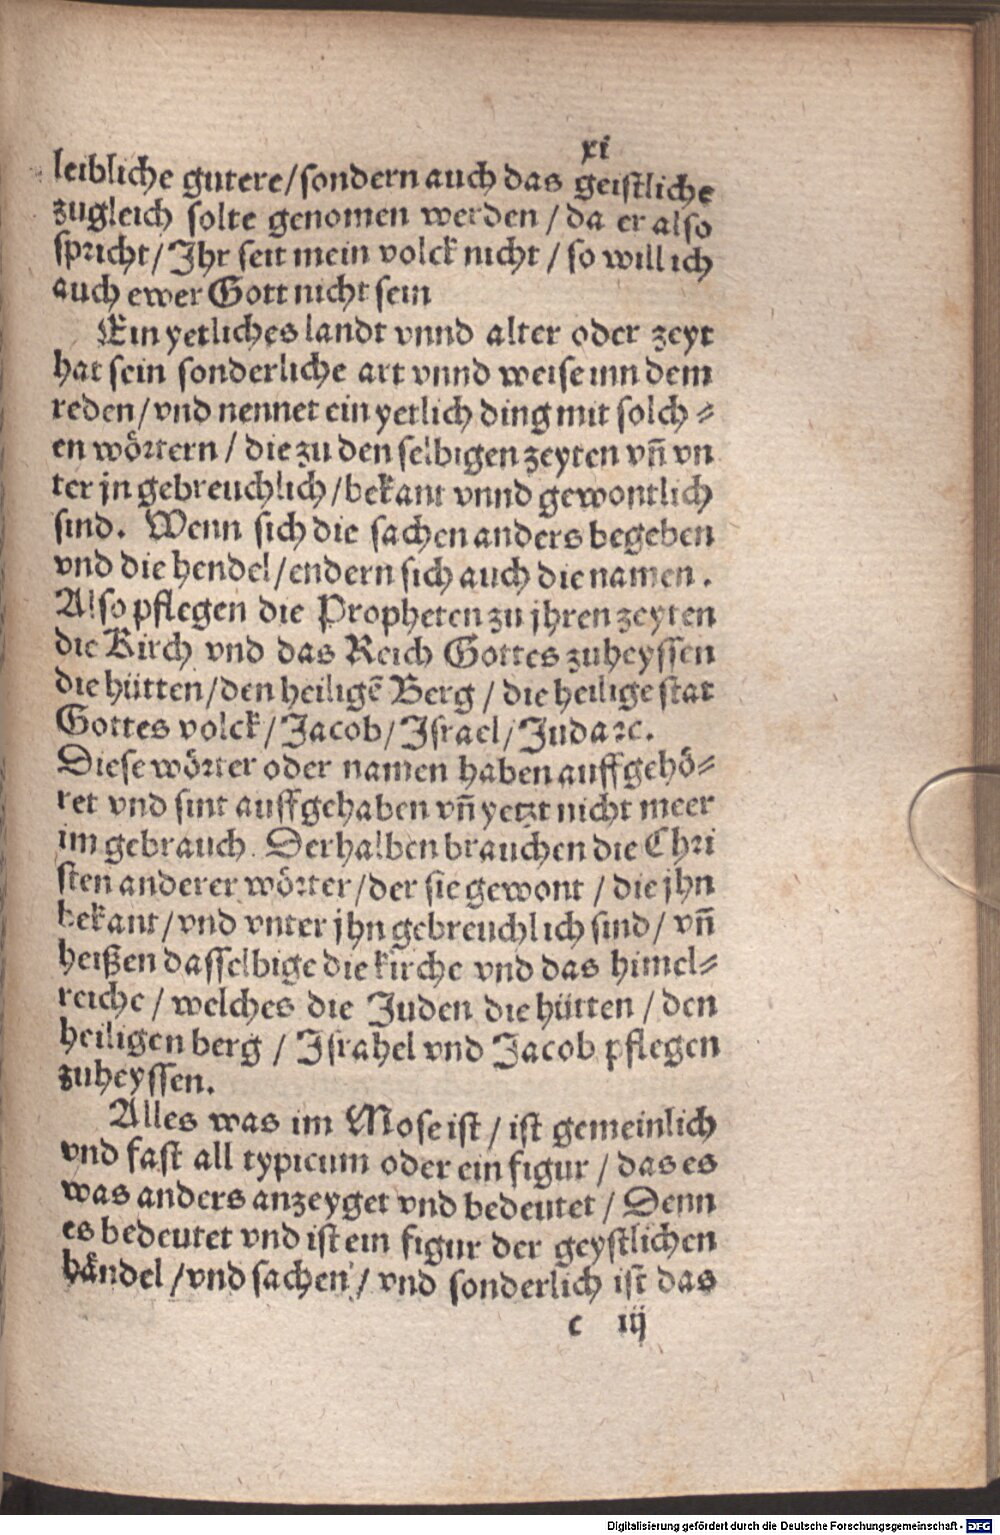 xi
leibliche gutere/sondern auch das geistliche
zugleich solte genomen werden / da er also
spricht/ Ihr seit mein volck nicht / so will ich
auch ewer Gott nicht sein
Ein yetliches landt vnnd alter oder zeyt
hat sein sonderliche art vnnd weise inn dem
reden/vnd nennet ein yetlich ding mit solch⸗
en wörtern / die zu den selbigen zeyten vn̄ vn
ter jn gebreuchlich/bekant vnnd gewontlich
sind. Wenn sich die sachen anders begeben
vnd die hendel/endern sich auch die namen.
Also pflegen die Propheten zu jhren zeyten
die Kirch vnd das Reich Gottes zuheyssen
die hütten/den heiligē Berg / die heilige stat
Gottes volck/ Jacob/ Israel/ Juda ꝛc.
Diese wörter oder namen haben auffgehö⸗
ret vnd sint auffgehaben vn̄ yetzt nicht meer
im gebrauch. Derhalben brauchen die Chri
sten anderer wörter/der sie gewont / die jhn
bekant/vnd vnter jhn gebreuchlich sind/ vn̄
heißen dasselbige die kirche vnd das himel⸗
reiche / welches die Juden die hütten / den
heiligen berg / Israhel vnd Jacob pflegen
zuheyssen.
Alles was im Mose ist / ist gemeinlich
vnd fast all typicum oder ein figur / das es
was anders anzeyget vnd bedeutet / Denn
es bedeutet vnd ist ein figur der geystlichen
händel /vnd sachen / vnd sonderlich ist das
c iij
Digitalisierung gefördert durch die Deutsche Forschungsgemeinschaft - DFG